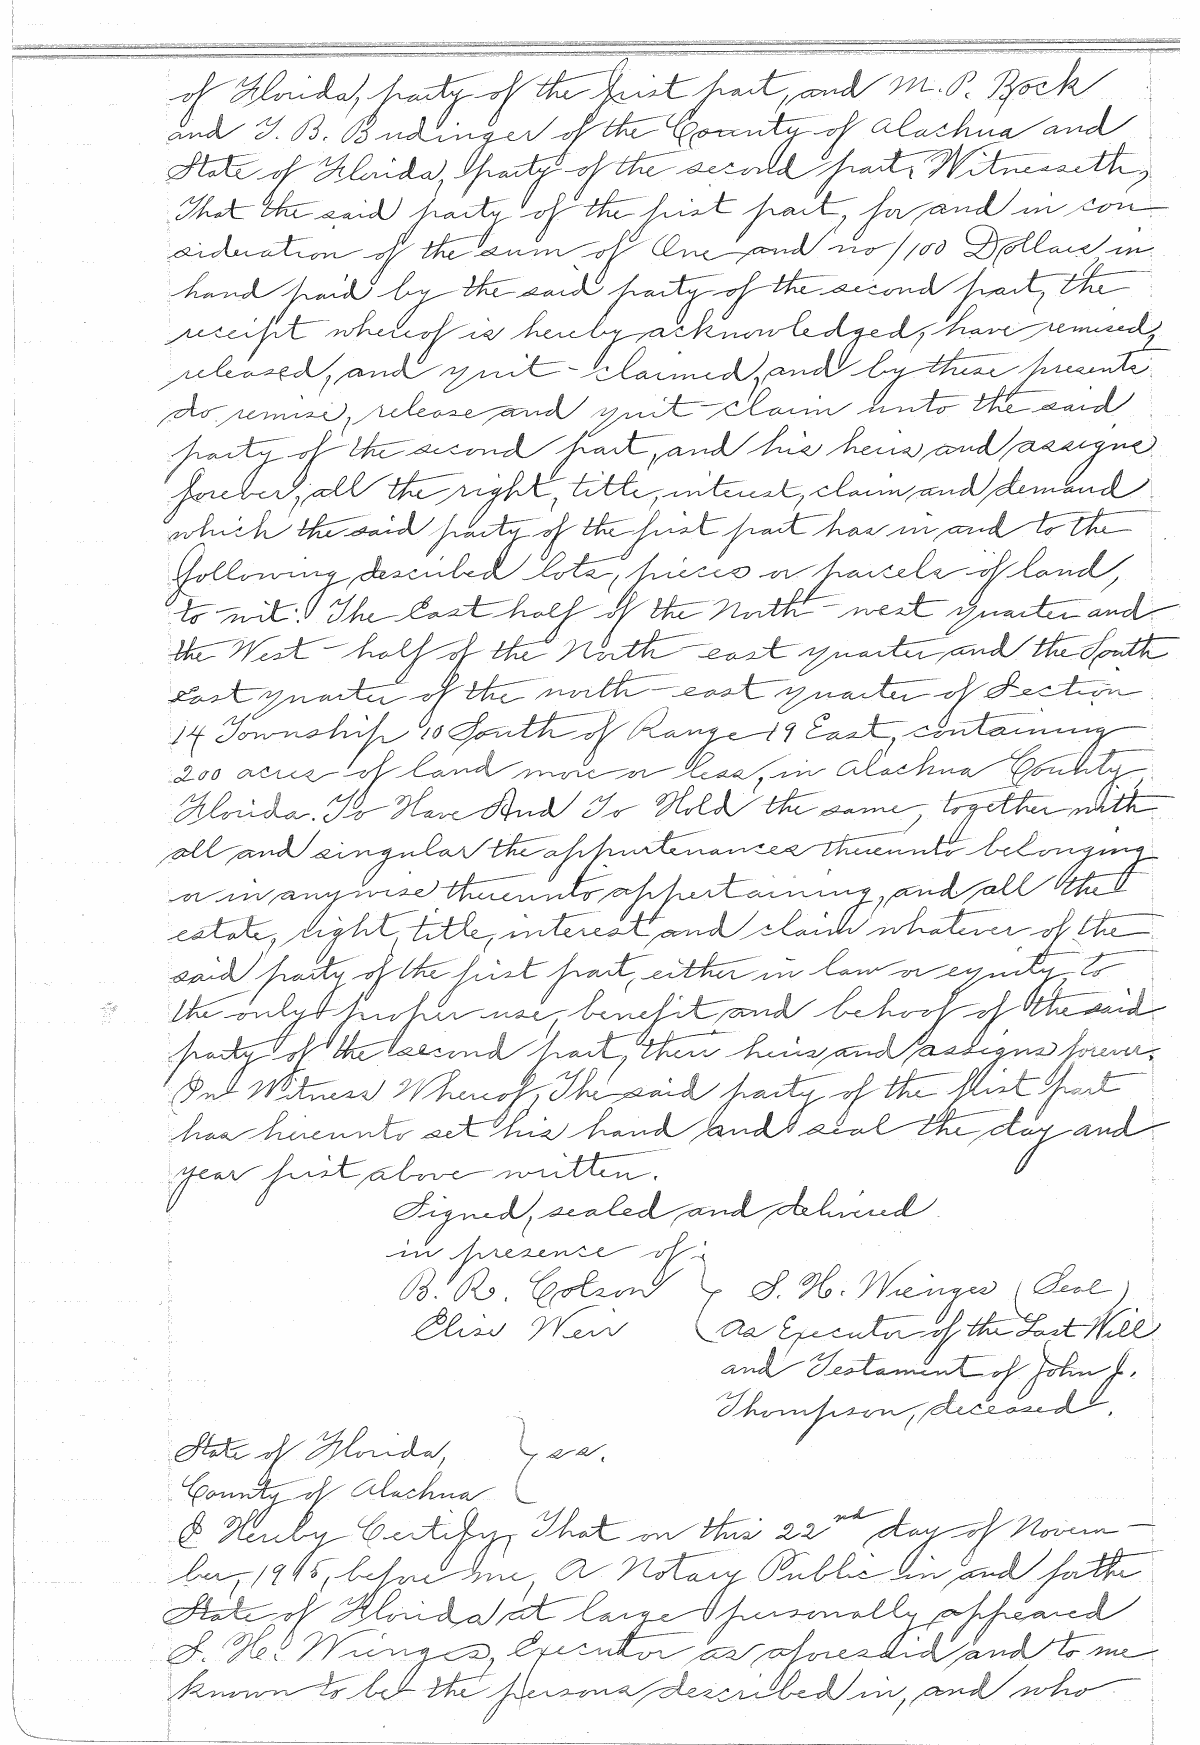 of Florida, party of the first part, and M. P. Bock
and T. B. Budinger of the County of Alachua and
State of Florida, party of the second part, Witnesseth,
That the said party of the first part, for and in con
sideration of the sum of One and no/100 Dollars in
hand paid by the said party of the second part, the
receipt whereof is hereby acknowledged, have remised,
released, and quit-claimed, and by these presents
do remise, release and quit-claim unto the said
party of the second part, and his heirs and assigns
forever, all the right, title, interest, claim and demand
which the said party of the first part has in and to the
following described lots, pieces or parcels of land,
to wit: The East half of the North-west quarter and
the West-half of the North east quarter and the South
east quarter of the north-east quarter of Section
14 Township 10 South of Range 19 East, containing
200 acres of land more or less, in Alachua County
Florida. To Have And To Hold the same, together with
all and singular the appurtenances thereunto belonging
or in anywise thereunto appertaining, and all the
estate, right, title, interest and claim whatever of the
said party of the first part, either in law or equity, to
the only proper use, benefit and behoof of the said
party of the second part, their heirs and assigns forever.
In Witness Whereof, The said party of the first part
has hereunto set his hand and seal the day and
year first above written.
Signed, sealed and delivered
in presence of:
B. R. Colson } S. H. Wienges (Seal)
Elise Weir (As Executor of the Last Will
and Testament of John J.
Thompson, deceased.
State of Florida, } ss.
County of Alachua
I Hereby Certify, That on this 22nd day of Novem-
ber, 1915, before me, A Notary Public in and for the
State of Florida at large personally appeared
S. H. Wienges, Executor as aforesaid and to me
known to be the persons described in, and who